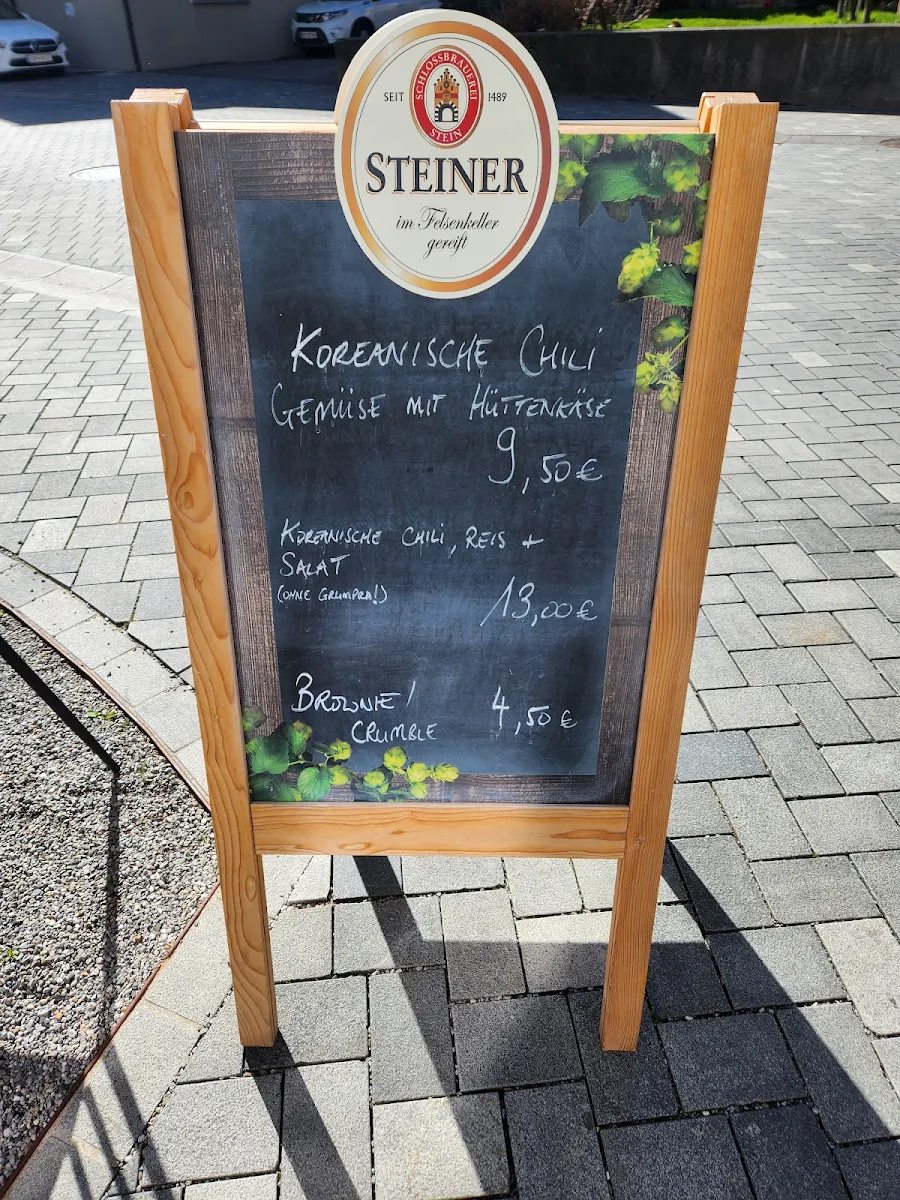 SCHLOSSBRAUEREI
SEIT 1489
STEIN
STEINER
im Felsenkeller
gereift
KOREANISCHE CHILI
GEMÜSE MIT HÜTTENKÄSE
9,50 €
KOREANISCHE CHILI, REIS +
SALAT
(OHNE GRUMPRA!)
13,00 €
BROWNIE/ 4,50 €
CRUMBLE